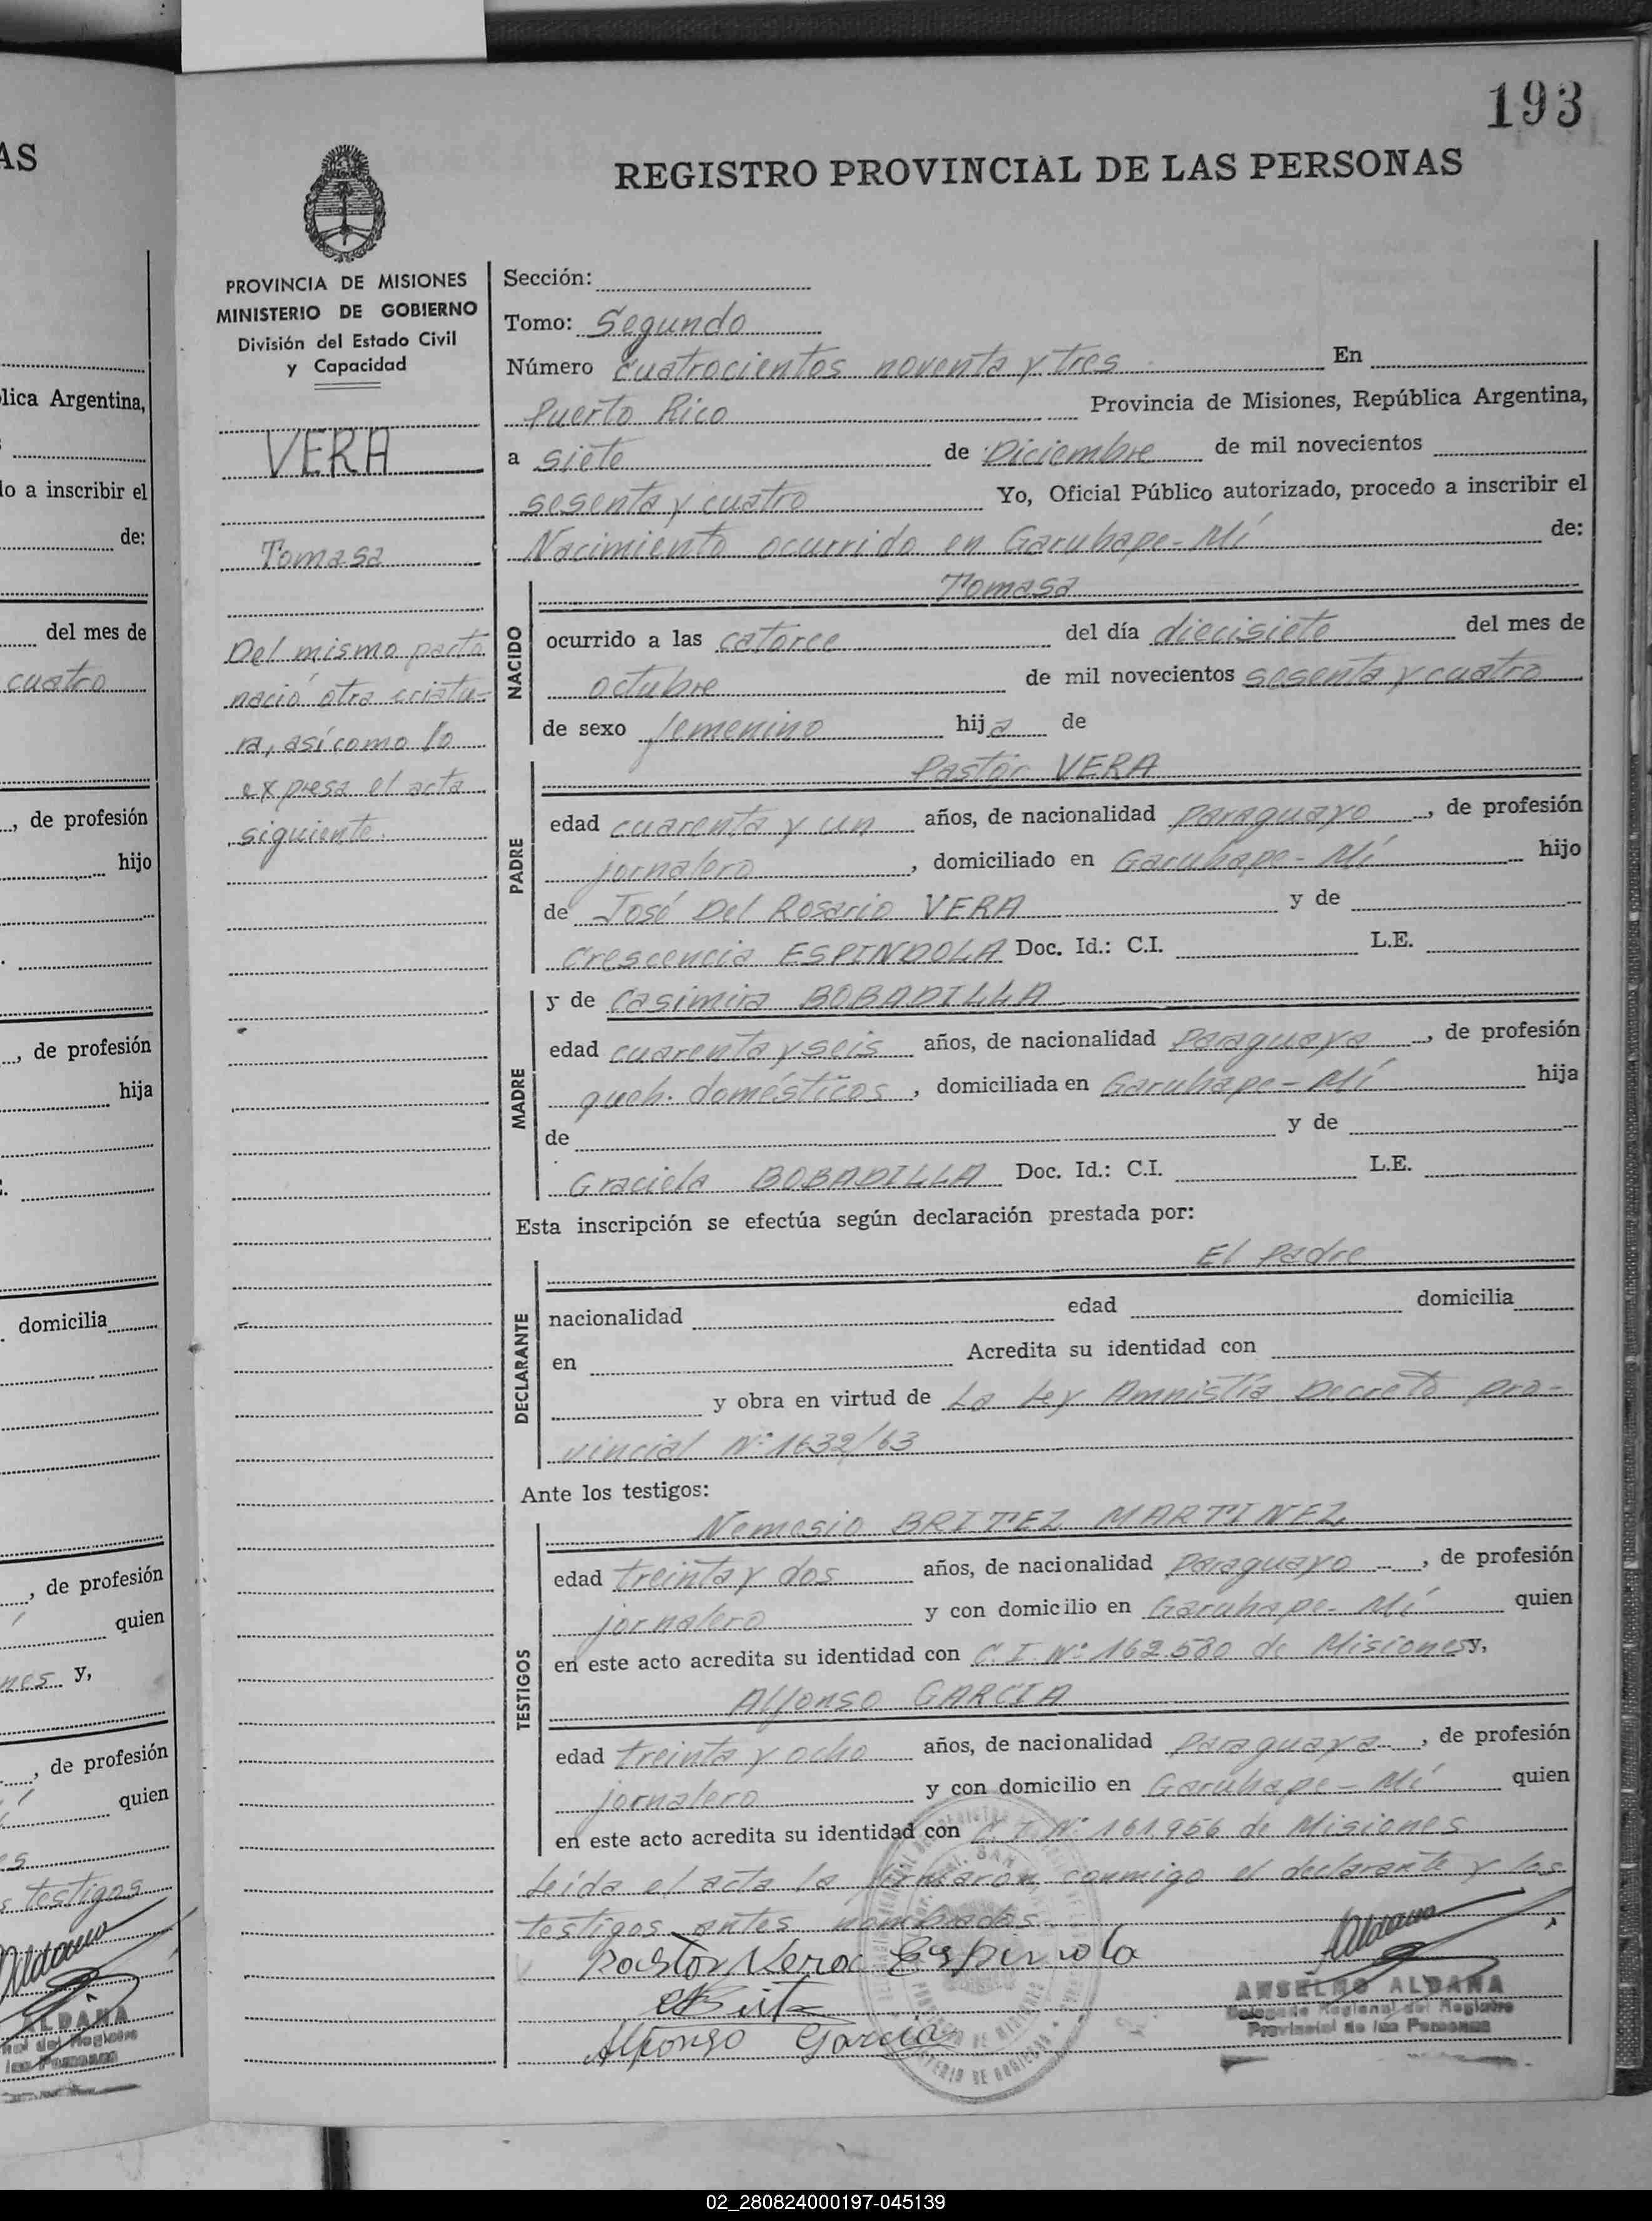 193
REGISTRO PROVINCIAL DE LAS PERSONAS
PROVINCIA DE MISIONES
MINISTERIO DE GOBIERNO
División del Estado Civil
y Capacidad
VERA
Tomasa
Del mismo parto
nació otra criatu-
ra, así como lo
expresa el acta
siguiente.
Sección:
Tomo: Segundo
Número cuatrocientos noventa y tres En
Puerto Rico Provincia de Misiones, República Argentina,
a siete de Diciembre de mil novecientos
sesenta y cuatro Yo, Oficial Público autorizado, procedo a inscribir el
Nacimiento ocurrido en Garuhape-Mí de:
NACIDO
Tomasa
ocurrido a las catorce del día diecisiete del mes de
octubre de mil novecientos sesenta y cuatro
de sexo femenino hija de
PADRE
Pastor VERA
edad cuarenta y un años, de nacionalidad paraguayo, de profesión
jornalero, domiciliado en Garuhape-Mí hijo
de José Del Rosario VERA y de
Crescencia ESPINDOLA Doc. Id.: C.I. L.E.
MADRE
y de Casimira BOBADILLA
edad cuarenta y seis años, de nacionalidad Paraguaya, de profesión
queh. domésticos, domiciliada en Garuhape-Mí hija
de y de
Graciela BOBADILLA Doc. Id.: C.I. L.E.
Esta inscripción se efectúa según declaración prestada por:
DECLARANTE
El Padre
nacionalidad edad domicilia
en Acredita su identidad con
y obra en virtud de La Ley Amnistía Decreto pro-
vincial N° 1632/63
Ante los testigos:
TESTIGOS
Nemesio BRITEZ MARTINEZ
edad treinta y dos años, de nacionalidad Paraguayo, de profesión
jornalero y con domicilio en Garuhape-Mí quien
en este acto acredita su identidad con C.I. N° 162.580 de Misiones y,
Alfonso GARCIA
edad treinta y ocho años, de nacionalidad Paraguaya, de profesión
jornalero y con domicilio en Garuhape-Mí quien
en este acto acredita su identidad con C.I. N° 161.956 de Misiones
Leída el acta la firmaron conmigo el declarante y los
testigos antes nombrados.
Pastor Vera Espinola
Alfonso Garcia
Aldana
ANSELMO ALDANA
Delegado Regional del Registro
Provincial de las Personas
AS
lica Argentina,
lo a inscribir el
de:
del mes de
cuatro
, de profesión
hijo
, de profesión
hija
domicilia
, de profesión
quien
nes y,
, de profesión
quien
es
s testigos
Aldana
ALDANA
02_280824000197-045139